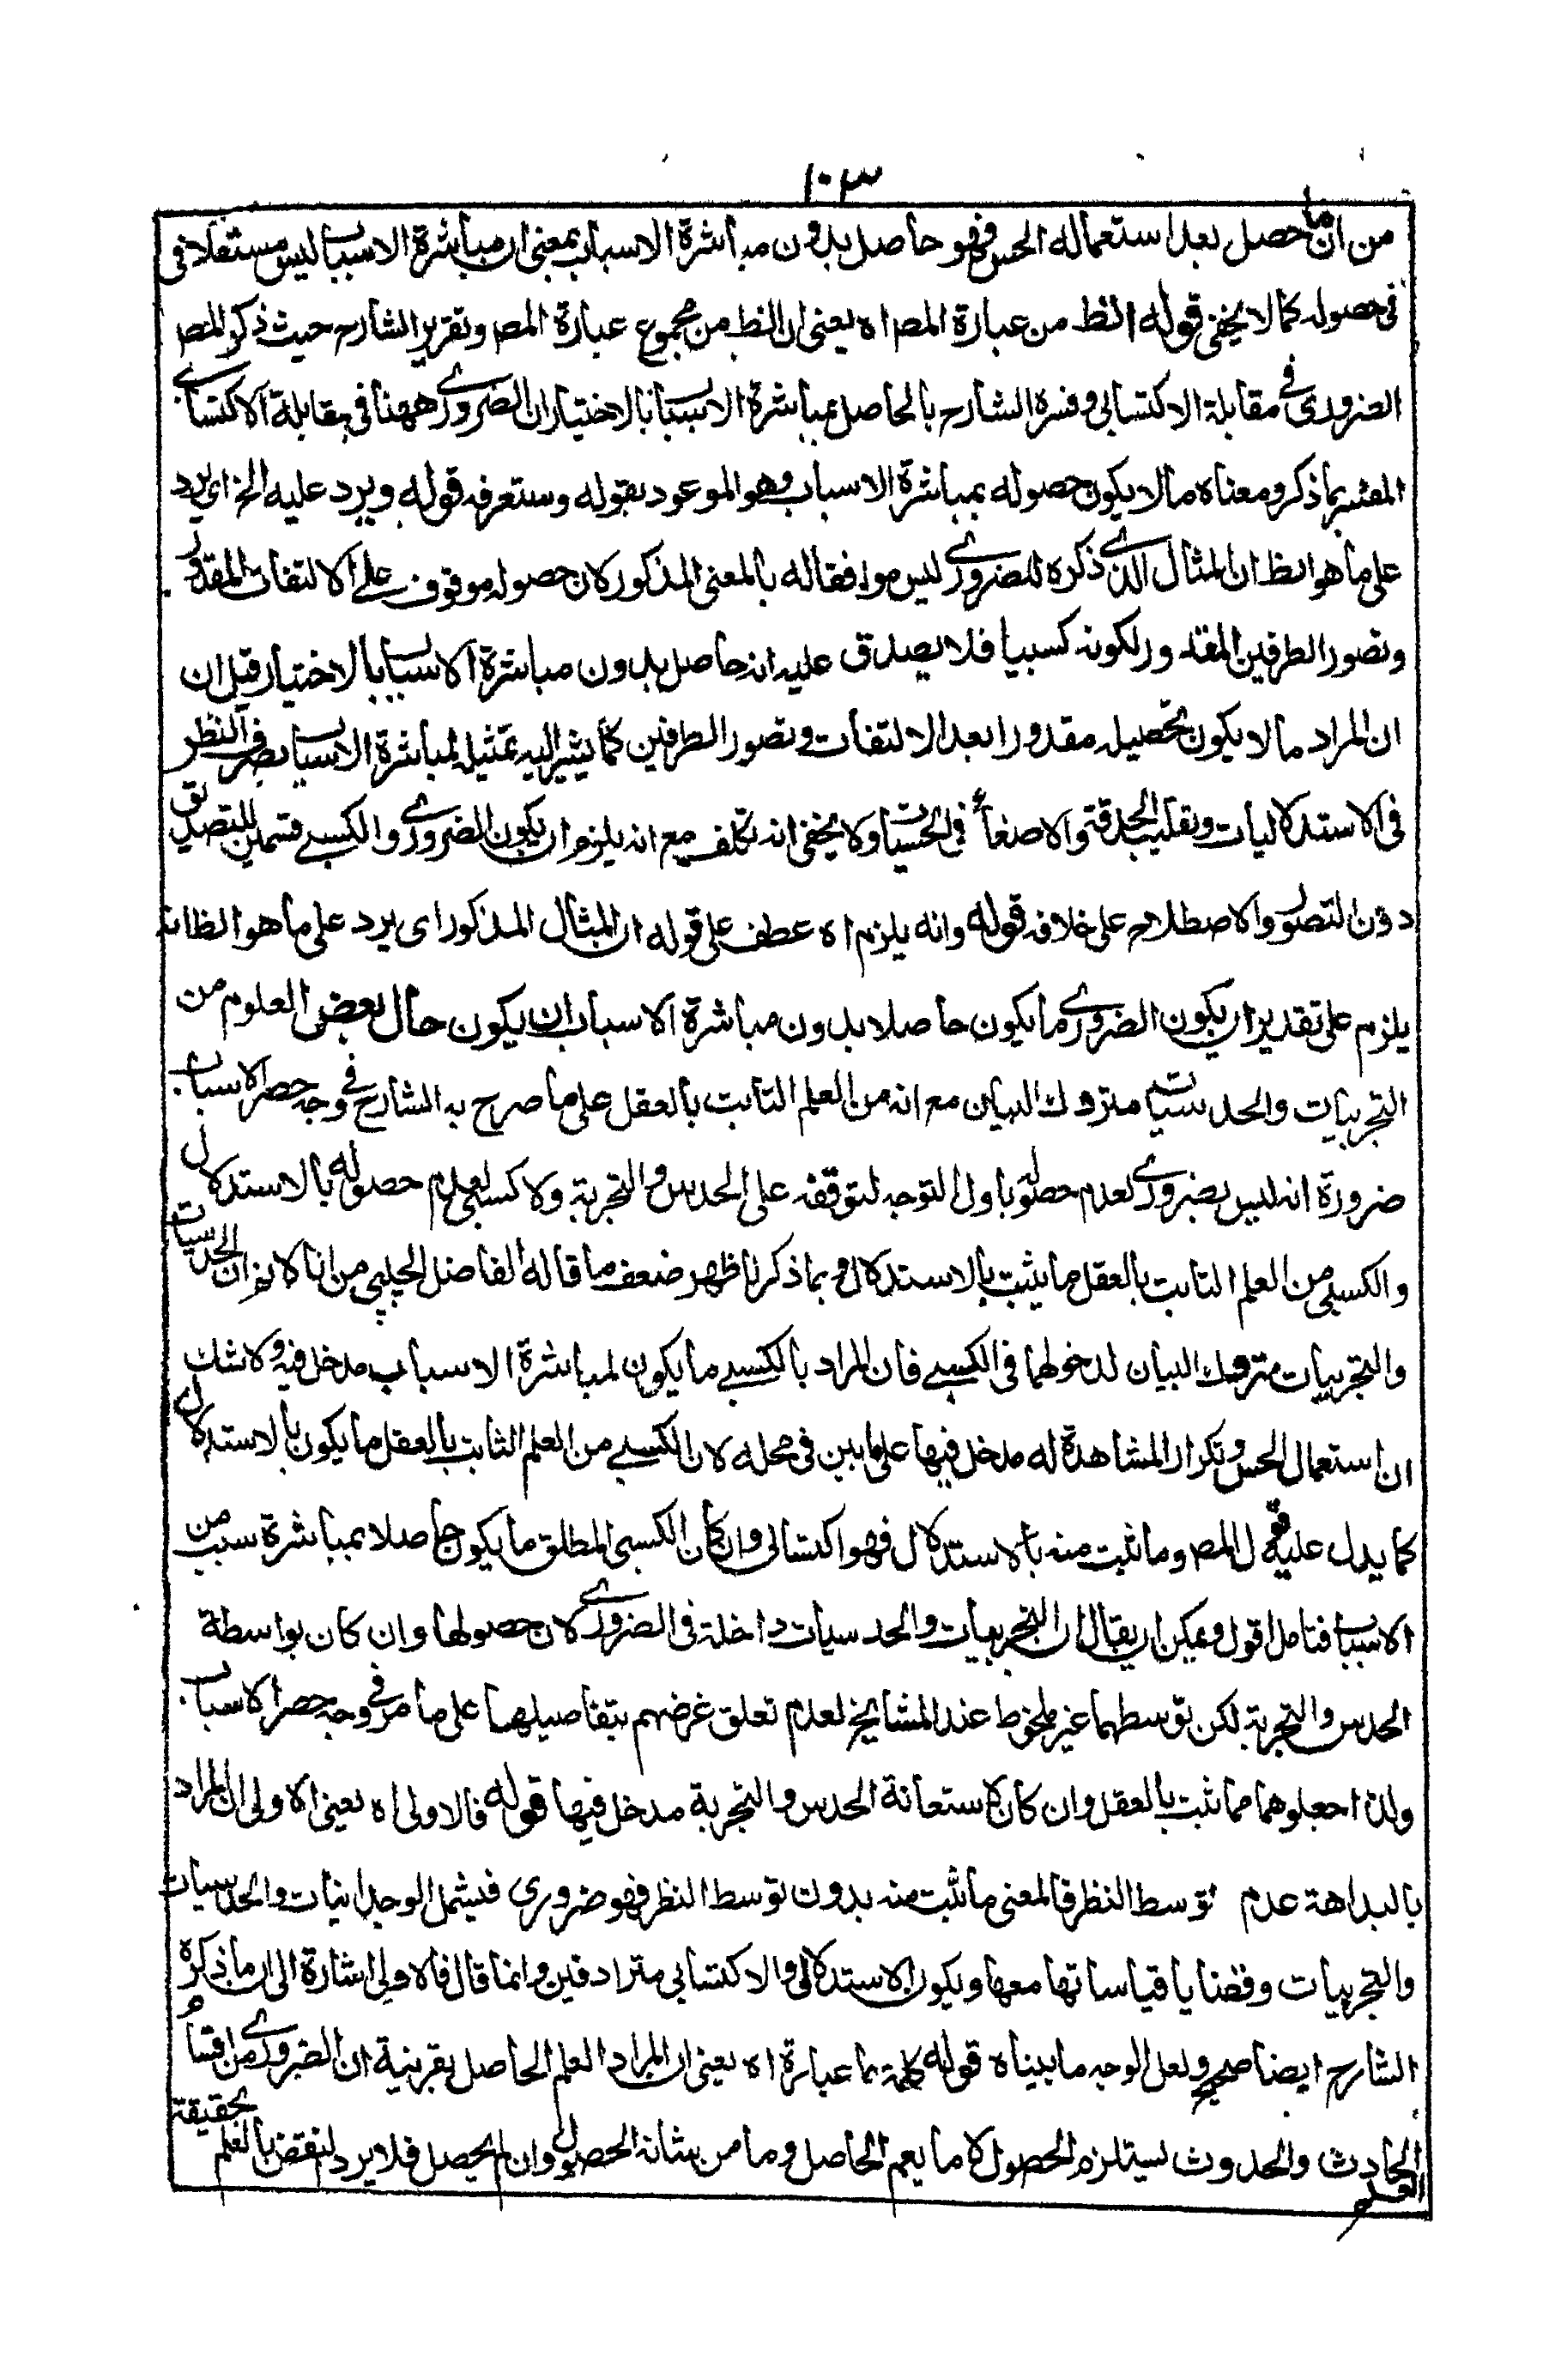 ١٠٣
من ان ما حصل بعد استعماله الحس فهو حاصل بدون مباشرة الاسباب بمعنى ان مباشرة الاسباب ليس مستقلا فى
فى حصوله كما لا يخفى قوله الظ من عبارة المص اه يعنى ان الظ من مجموع عبارة المص وتقرير الشارح حيث ذكر المص
الضرورى فى مقابلة الاكتسابى وفسره الشارح بالحاصل بمباشرة الاسباب بالاختيار ان الضرورى ههنا فى مقابلة الاكتسابى
المفسر بما ذكر ومعناه مالا يكون حصوله بمباشرة الاسباب وهو الموعود بقوله وستعرفه قوله ويرد عليه الخ اى يرد
على ما هو الظ ان المثال الذى ذكره للضرورى ليس موافقا له بالمعنى المذكور لان حصوله موقوف على الالتفات المقدور
وتصور الطرفين المقدور لكونه كسبيا فلا يصدق عليه انه حاصل بدون مباشرة الاسباب بالاختيار قيل ان
ان المراد مالا يكون تحصيله مقدورا بعد الالتفات وتصور الطرفين كما يشير اليه تمثيله لمباشرة الاسباب بصرف النظر
فى الاستدلاليات وتقليب الحدقة والاصغاء فى الحسيات ولا يخفى انه تكلف مع انه يلزم ان يكون الضرورى والكسبى قسمين للتصديق
دون التصور والاصطلاح على خلافه قوله وانه يلزم اه عطف على قوله ان المثال المذكور اى يرد على ما هو الظ انه
يلزم على تقدير ان يكون الضرورى ما يكون حاصلا بدون مباشرة الاسباب ان يكون حال بعض العلوم من
التجربيات والحدسيات متروك البيان مع انه من العلم الثابت بالعقل على ما صرح به الشارح فى وجه حصر الاسباب
ضرورة انه ليس بضرورى لعدم حصوله باول التوجه لتوقفه على الحدس والتجربة ولا كسبى لعدم حصوله بالاستدلال
والكسبى من العلم الثابت بالعقل ما يثبت بالاستدلال وبما ذكرنا ظهر ضعف ما قاله الفاضل الچلپى من انا لانم ان الحدسيات
والتجربيات متروك البيان لدخولهما فى الكسبى فان المراد بالكسبى ما يكون لمباشرة الاسباب مدخل فيه ولا شك
ان استعمال الحس وتكرار المشاهدة له مدخل فيها على ما بين فى محله لان الكسبى من العلم الثابت بالعقل ما يكون بالاستدلال
كما يدل عليه قول المص وما ثبت منه بالاستدلال فهو اكتسابى وان كان الكسبى المطلق ما يكون حاصلا بمباشرة سبب من
الاسباب فتامل اقول ويمكن ان يقال ان التجربيات والحدسيات داخلة فى الضرورى لان حصولها وان كان بواسطة
الحدس والتجربة لكن توسطهما غير ملحوظ عند المشايخ لعدم تعلق غرضهم بتفاصيلها على ما مر فى وجه حصر الاسباب
ولذا جعلوهما مما ثبت بالعقل وان كان لاستعانة الحدس والتجربة مدخل فيها قوله فالاولى اه يعنى الاولى ان المراد
بالبداهة عدم توسط النظر فالمعنى ما ثبت منه بدون توسط النظر فهو ضرورى فيشمل الوجدانيات والحدسيات
والتجربيات وقضايا قياساتها معها ويكون الاستدلالى والاكتسابى مترادفين وانما قال فالاولى اشارة الى ان ما ذكره
الشارح ايضا صحيح ولعل الوجه ما بيناه قوله كلمة ما عبارة اه يعنى ان المراد العلم الحاصل بقرينة ان الضرورى من اقسام
الحادث والحدوث يستلزم الحصول لا ما يعم الحاصل وما من شانه الحصول وان لم يحصل فلا يرد النقض بالعلم بحقيقة
العلم